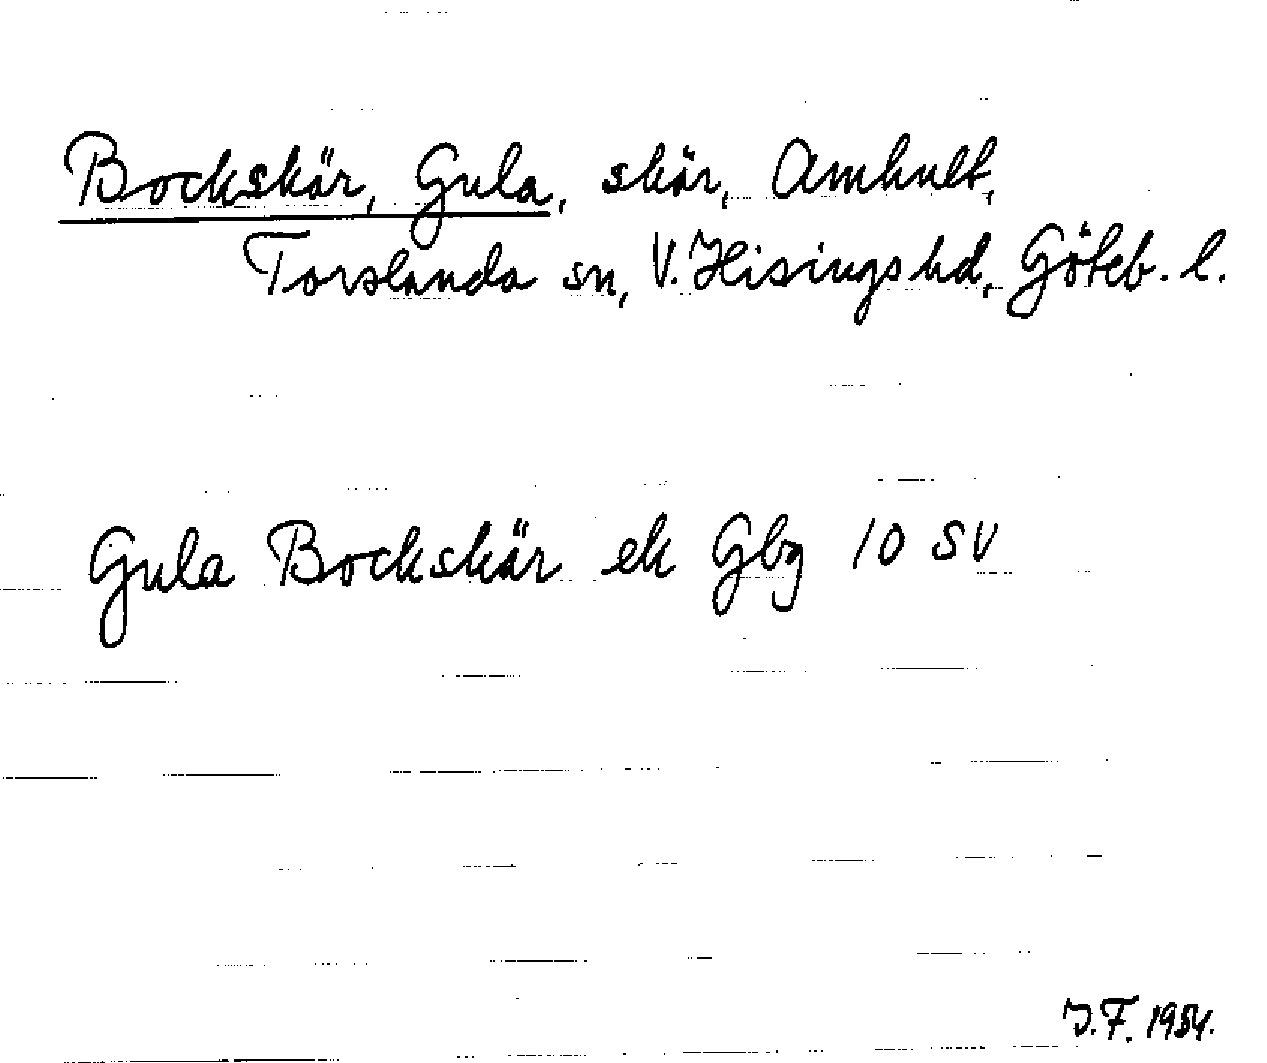 Bockskär, Gula, skär, Amhult,
Torslanda sn, V. Hisings hd, Göteb. l.
Gula Bockskär ek Gbg 10 SV
J.F. 1954.